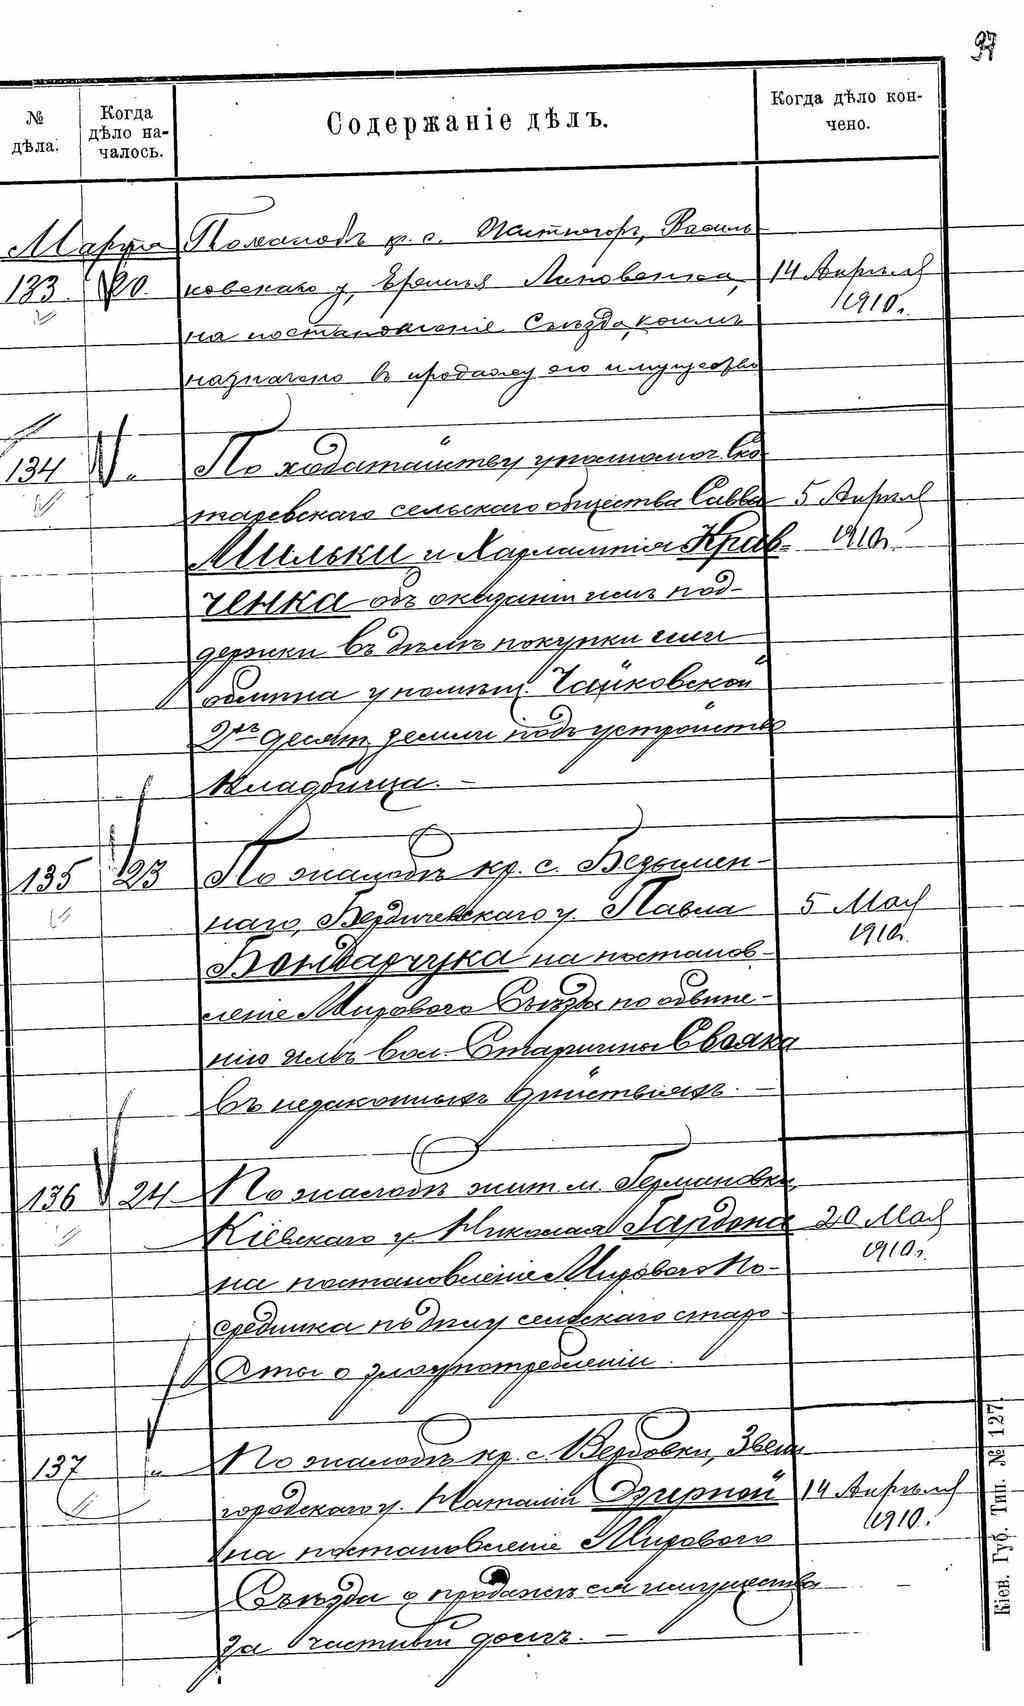 97
№ дѣла.
Когда дѣло началось.
Содержаніе дѣлъ.
Когда дѣло кончено.
Марта
133. 20.
По жалобѣ кр. с. Василь-
ковскаго у, Еремія Линовенка,
на постановленіе Съѣзда, коимъ
назначено въ продажу его имущество
14 Апрѣля
1910г.
134 "
По ходатайству уполномоч. Ско-
таревскаго сельскаго общества Саввы
Мильки и Харлампія Крав-
ченка объ оказаніи имъ под-
держки въ дѣлѣ покупки или
обмѣна у помѣщ. Чайковской
2хъ десят. земли подъ устройство
кладбища. —
5 Апрѣля
1910г.
135 23
По жалобѣ кр. с. Безымен-
наго, Бердичевскаго у. Павла
Бондарчука на постанов-
леніе Мироваго Съѣзда по обвине-
нію имъ вол. Старшины Свояка
въ незаконныхъ дѣйствіяхъ. —
5 Мая
1910г.
136 24
По жалобѣ жит. м. Германовки,
Кіевскаго у. Николая Гардона
на постановленіе Мироваго По-
средника по дѣлу сельскаго старо-
сты о злоупотребленіи.
20 Мая
1910г.
137 "
По жалобѣ кр. с. Вербовки, Звени-
городскаго у. Наталіи Озерной
на постановленіе Мироваго
Съѣзда о продажѣ ея имущества
за частный долгъ. —
14 Апрѣля
1910г.
Кіев. Губ. Тип. № 127.